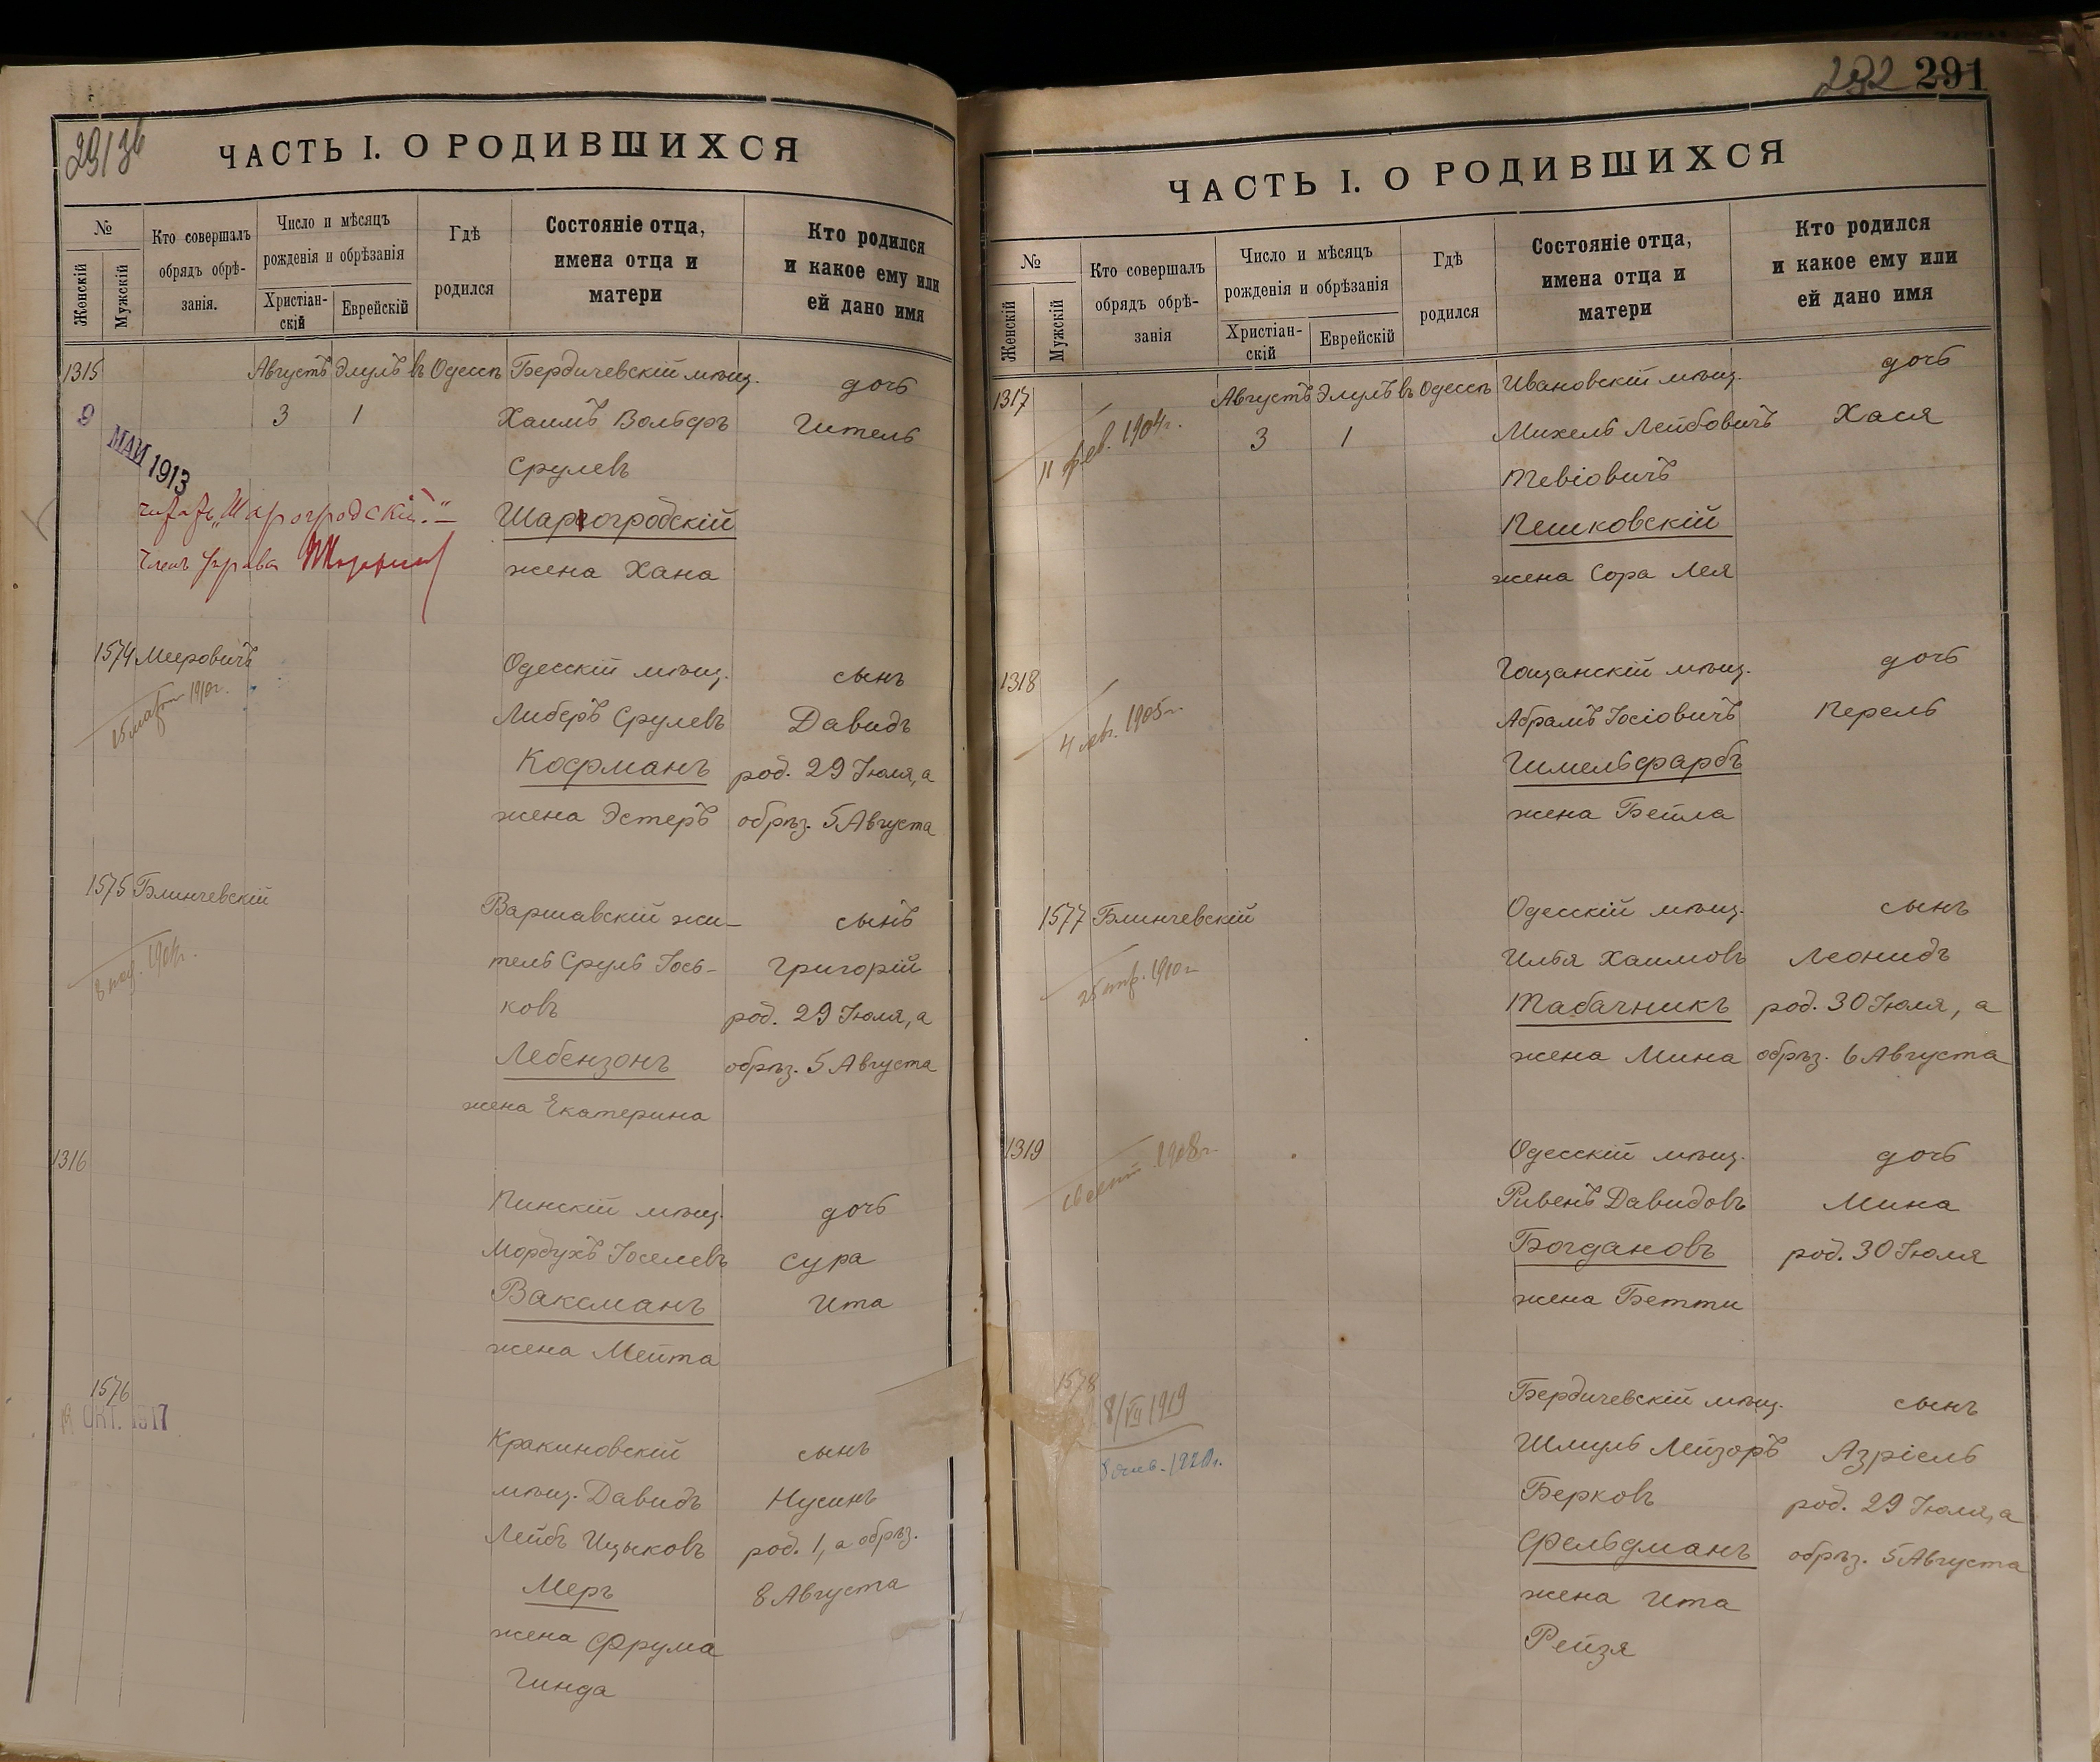 29/36
ЧАСТЬ I. О РОДИВШИХСЯ
№
Женскій
Мужскій
Кто совершалъ
обрядъ обрѣ-
занія.
Число и мѣсяцъ
рожденія и обрѣзанія
Христіан-
скій
Еврейскій
Гдѣ
родился
Состояніе отца,
имена отца и
матери
Кто родился
и какое ему или
ей дано имя
1315 Августъ Элулъ въ Одессѣ Бердичевскій мѣщ. дочь
9 3 1 Хаимъ Вольфъ Гитель
МАЙ 1913
Срулевъ
"Шарогродскій."
Шарогродскій
Членъ Управы
жена Хана
1574 Мееровичъ Одесскій мѣщ. сынъ
15 марта 1910г.
Либеръ Срулевъ Давидъ
Кофманъ род. 29 Іюля, а
жена Эстеръ обрѣз. 5 Августа
1575 Блинчевскій Варшавскій жи- сынъ
тель Сруль Іось- Григорій
ковъ род. 29 Іюля, а
Лебензонъ обрѣз. 5 Августа
жена Екатерина
1316
Пинскій мѣщ. дочь
Мордухъ Іоселевъ Сура
Ваксманъ Ита
жена Мейта
1576
ОКТ. 1917
Кракиновскій сынъ
мѣщ. Давидъ Нусинъ
Лейбъ Ицыковъ род. 1, а обрѣз.
Меръ 8 Августа
жена Фрума
Гинда
292 291
ЧАСТЬ I. О РОДИВШИХСЯ
№
Женскій
Мужскій
Кто совершалъ
обрядъ обрѣ-
занія
Число и мѣсяцъ
рожденія и обрѣзанія
Христіан-
скій
Еврейскій
Гдѣ
родился
Состояніе отца,
имена отца и
матери
Кто родился
и какое ему или
ей дано имя
1317 Августъ Элулъ въ Одессѣ Ивановскій мѣщ. дочь
11 фев. 1904г. 3 1 Михель Лейбовичъ Хася
Тевіовичъ
Пешковскій
жена Сора Лея
1318 Гощанскій мѣщ. дочь
4 1905г. Абрамъ Іосіовичъ Перель
Гимельфарбъ
жена Бейла
1577 Блинчевскій Одесскій мѣщ. сынъ
Илья Хаимовъ Леонидъ
25 1910г. Табачникъ род. 30 Іюля, а
жена Мина обрѣз. 6 Августа
1319 Одесскій мѣщ. дочь
1908г. Ривенъ Давидовъ Мина
Богдановъ род. 30 Іюля
жена Бетти
1578 Бердичевскій мѣщ. сынъ
8/VII 1919
Шмуль Лейзоръ Азріель
Берковъ род. 29 Іюля, а
Фельдманъ обрѣз. 5 Августа
жена Ита
Рейзя